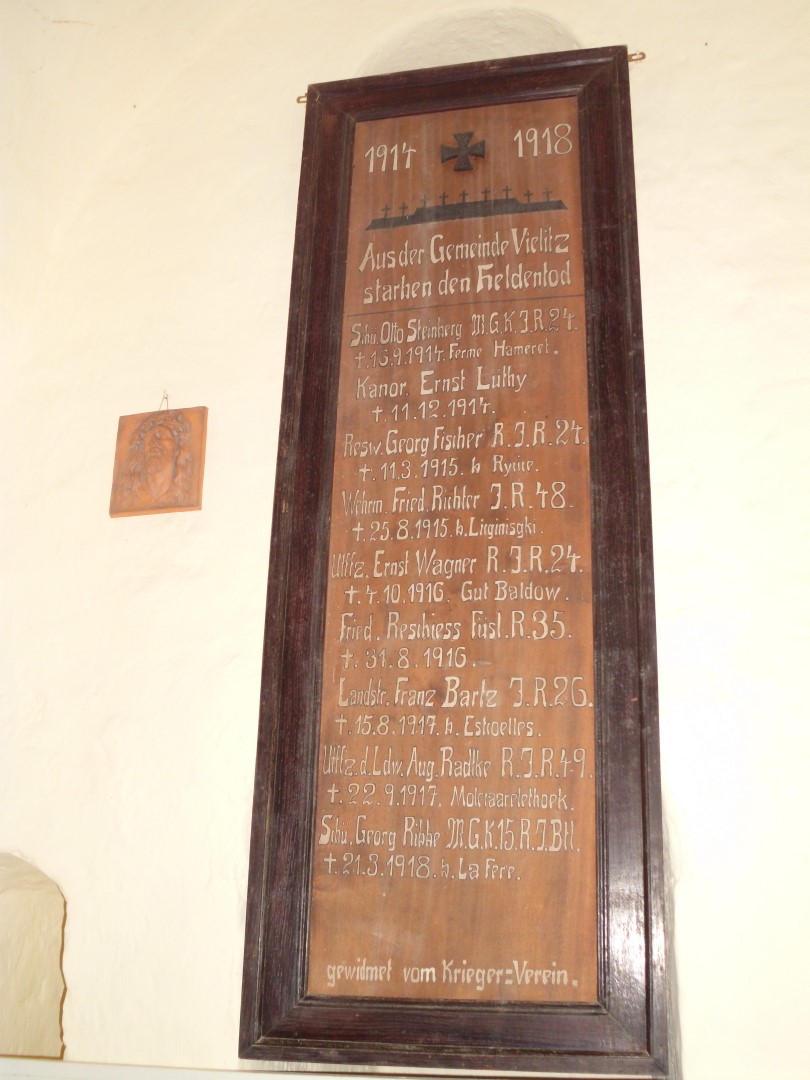 1914 1918
Aus der Gemeinde Vielitz
starben den Heldentod
Schü. Otto Steinberg M.G.K.J.R.24.
†.16.9.1914. Ferme Hameret.
Kanor. Ernst Lüthy
†.11.12.1914.
Resw. Georg Fischer R.J.R.24.
†.11.3.1915. b
Wehrm. Fried. Richter J.R.48.
†.25.8.1915. b.
Utffz. Ernst Wagner R.J.R.24.
†.4.10.1916. Gut Baldow.
Fried. Reschiess Füsl.R.35.
†.31.8.1916.
Landstr. Franz Bartz J.R.26.
†.15.8.1917. b. Estroelles.
Utffz.d.Ldw. Aug. Radtke R.J.R.49.
†.22.9.1917.
Schü. Georg Ribbe M.G.K.15.R.J.Btl.
†.21.3.1918. b. La Fere.
gewidmet vom Krieger=Verein.